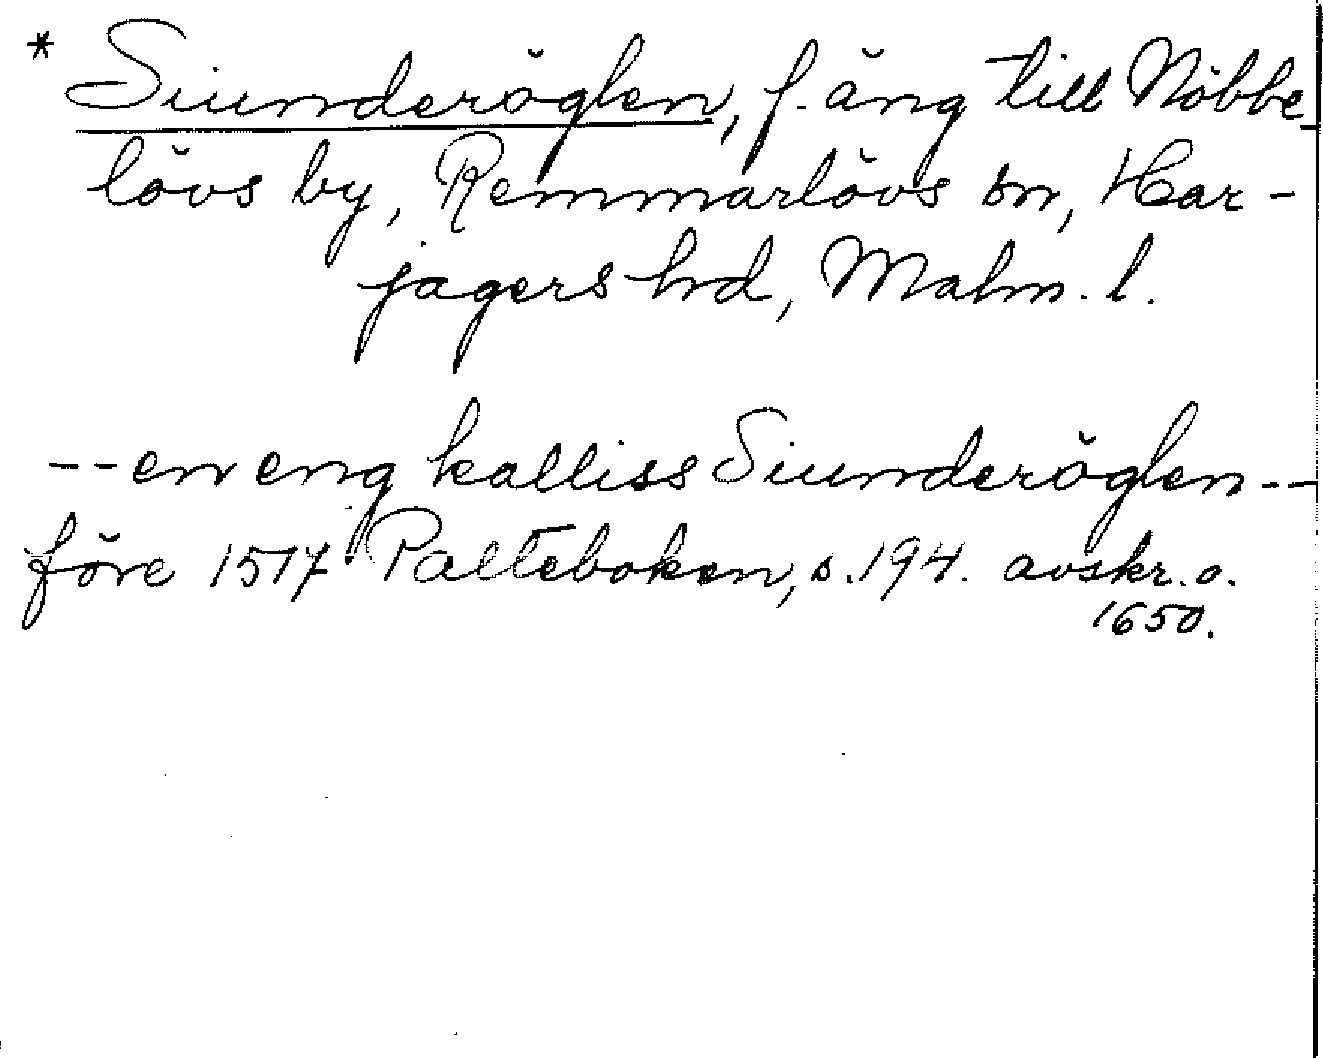 * Siunderöglen, f. äng till Nöbbe-
lövs by, Remmarlövs sn, Har-
jagers hd, Malm. l.
-- en eng kalliss Siunderöglen --
före 1517 Palteboken, s. 194. avskr. o.
1650.